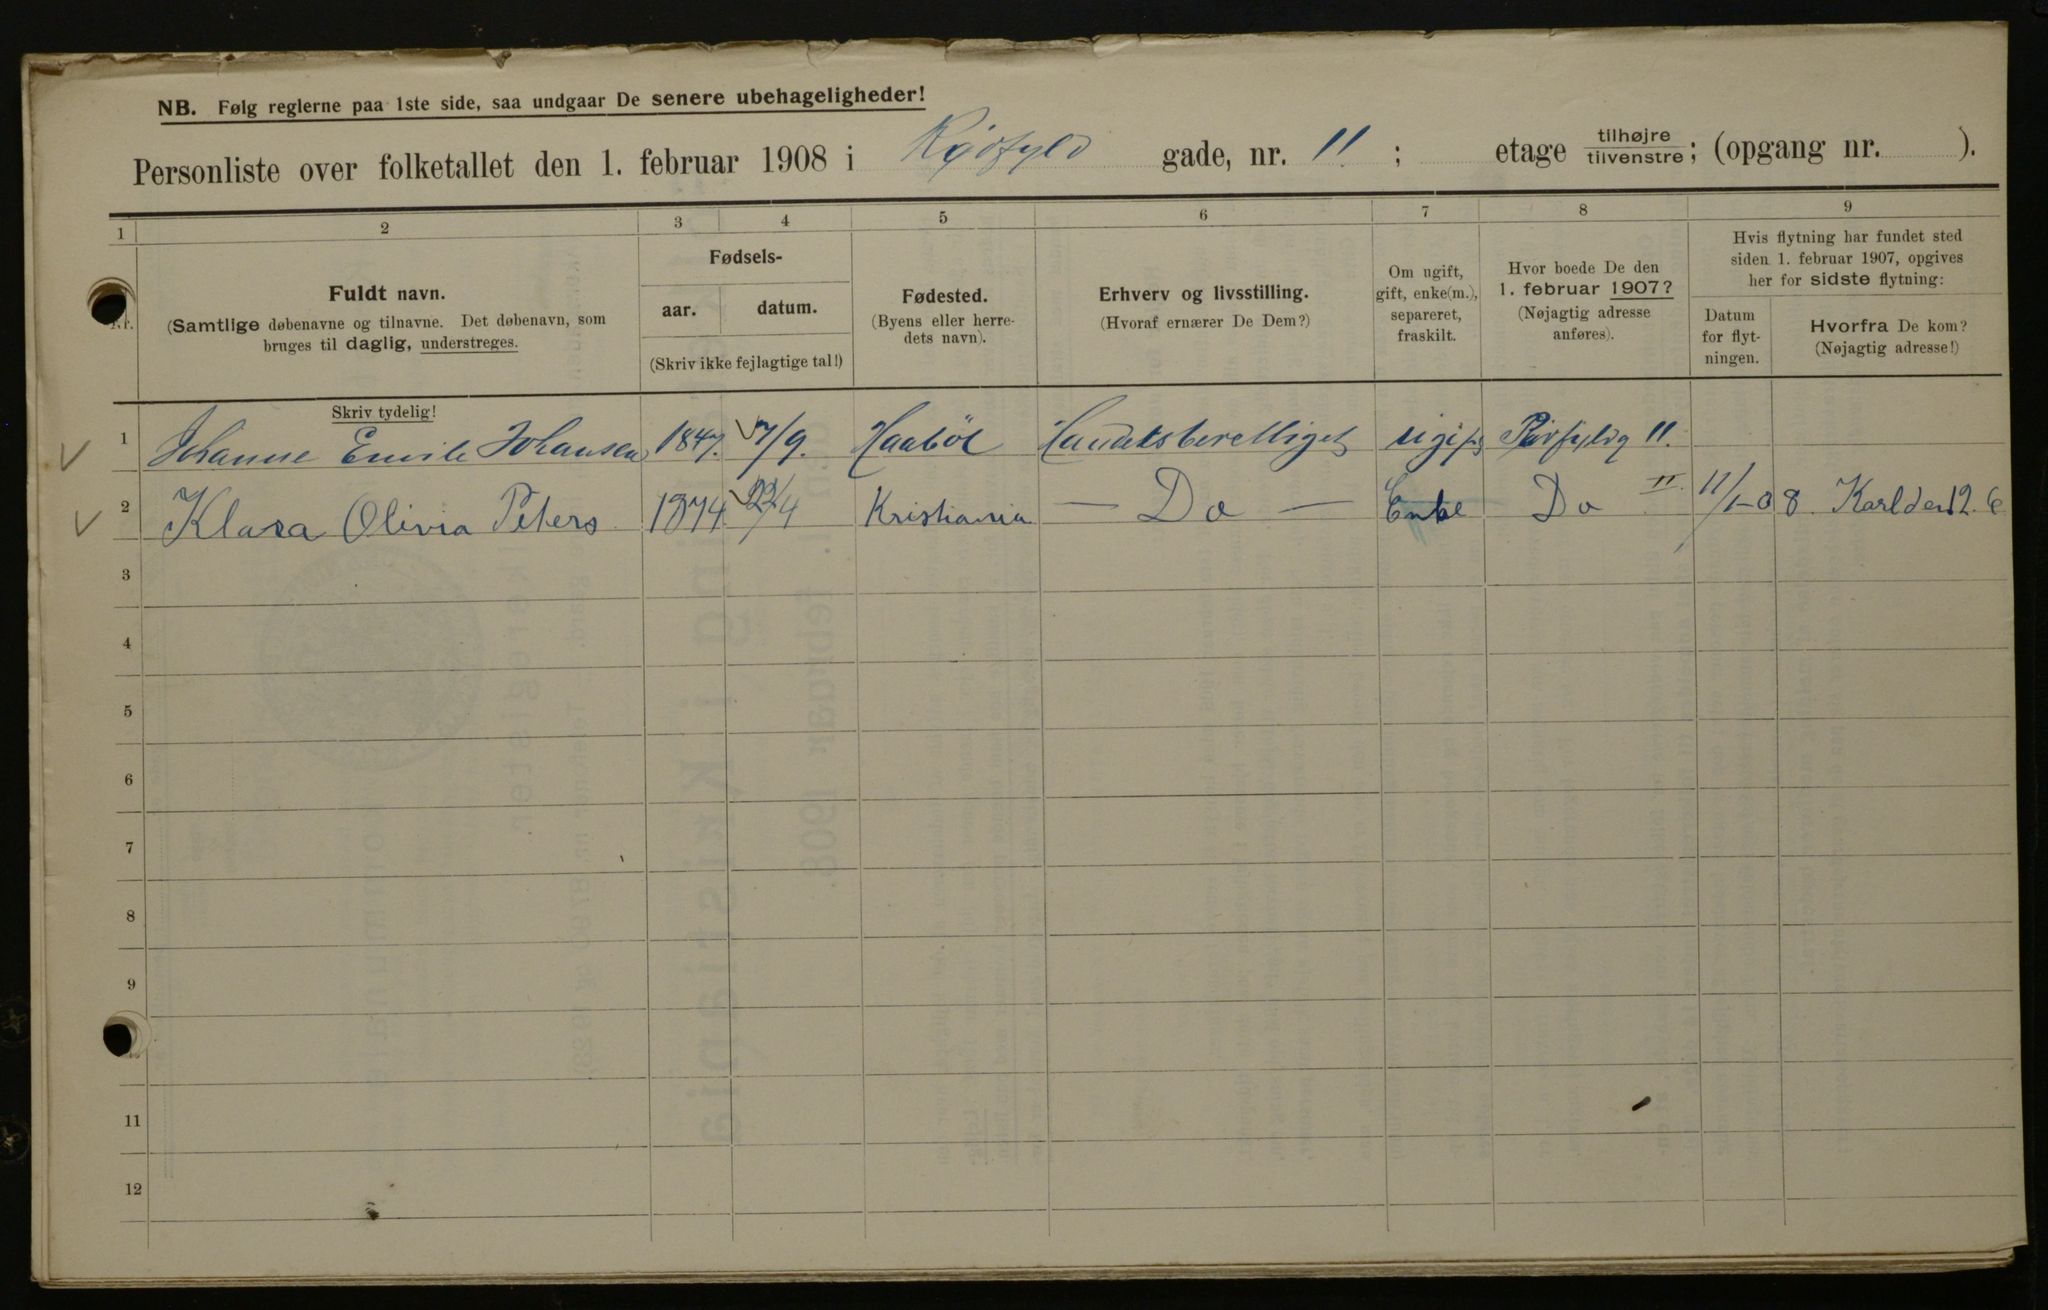 NB. Følg reglerne paa 1ste side, saa undgaar De senere ubehageligheder!
Personliste over folketallet den 1. februar 1908 i Rødfyld gade, nr. 11 ; etage tilhøjre/tilvenstre; (opgang nr. ).
1 2 3 4 5 6 7 8 9
Nr.
Fuldt navn.
(Samtlige døbenavne og tilnavne. Det døbenavn, som
bruges til daglig, understreges.
Skriv tydelig!
Fødsels-
aar. datum.
(Skriv ikke fejlagtige tal!)
Fødested.
(Byens eller herre-
dets navn).
Erhverv og livsstilling.
(Hvoraf ernærer De Dem?)
Om ugift,
gift, enke(m.),
separeret,
fraskilt.
Hvor boede De den
1. februar 1907?
(Nøjagtig adresse
anføres).
Hvis flytning har fundet sted
siden 1. februar 1907, opgives
her for sidste flytning:
Datum
for flyt-
ningen.
Hvorfra De kom?
(Nøjagtig adresse!)
1 Johanne Emile Johansen 1847. 7/9. Haabøl Handelsberettiget ugift Rødfyldg 11.
2 Klara Olivia Peters 1874 22/4 Kristiania — Do — Enke Do 11. 11/1-08 Karl den 12. G
3
4
5
6
7
8
9
11
12